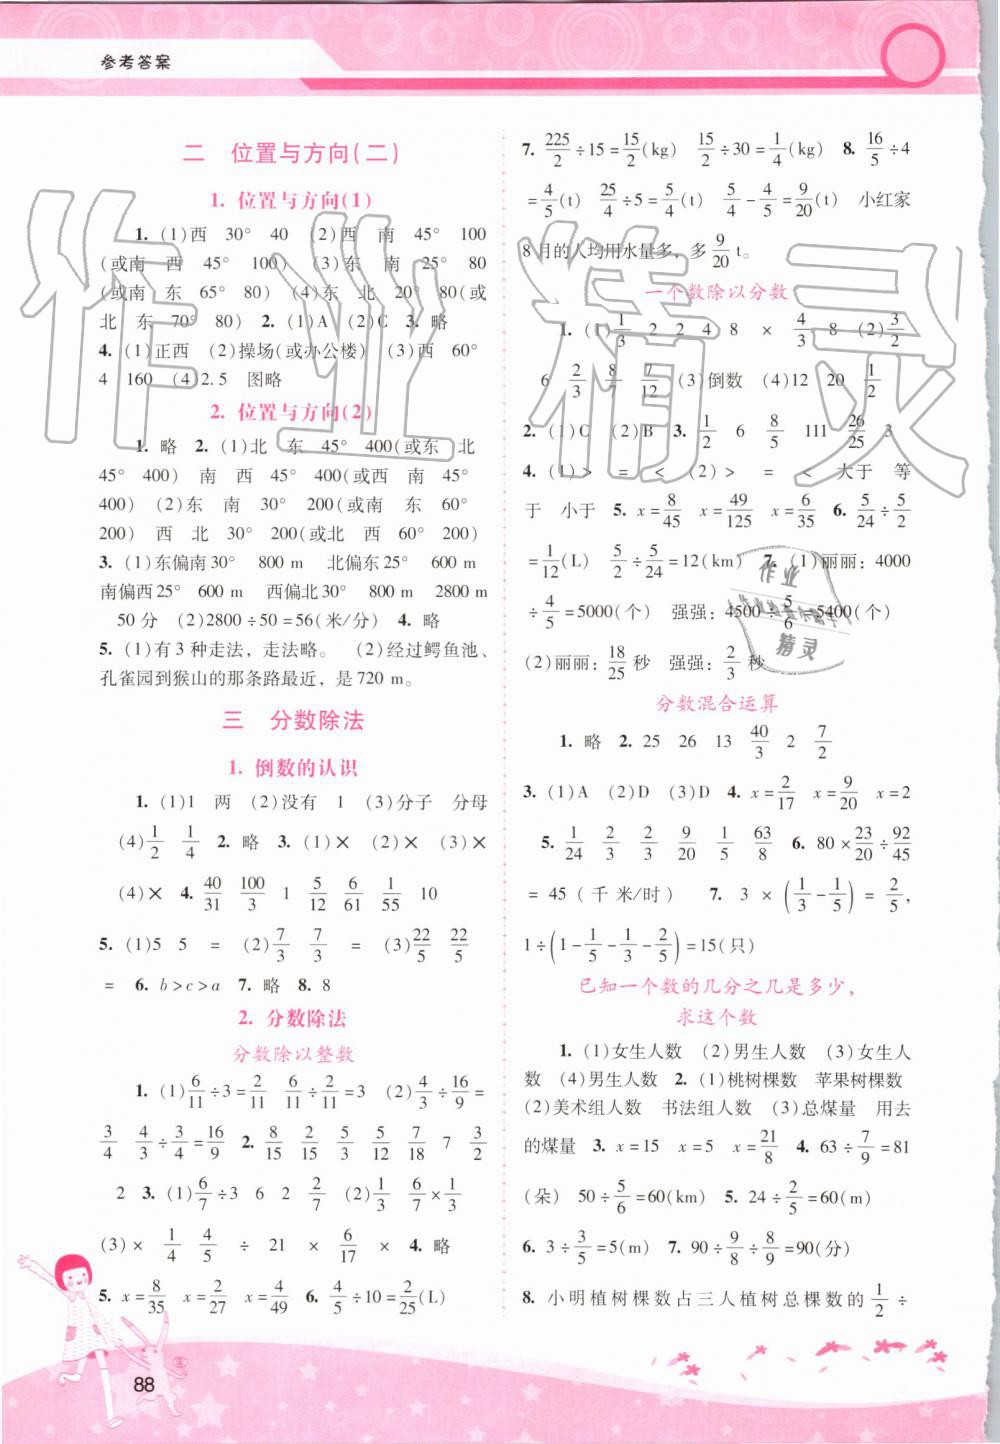 参考答案
二 位置与方向(二)
1. 位置与方向(1)
1. (1)西 30° 40 (2)西 南 45° 100
(或南 西 45° 100) (3)东 南 25° 80
(或南 东 65° 80) (4)东 北 20° 80(或
北 东 70° 80) 2. (1)A (2)C 3. 略
4. (1)正西 (2)操场(或办公楼) (3)西 60°
4 160 (4)2.5 图略
2. 位置与方向(2)
1. 略 2. (1)北 东 45° 400(或东 北
45° 400) 南 西 45° 400(或西 南 45°
400) (2)东 南 30° 200(或南 东 60°
200) 西 北 30° 200(或北 西 60° 200)
3. (1)东偏南30° 800 m 北偏东25° 600 m
南偏西25° 600 m 西偏北30° 800 m 2800 m
50分 (2)2800÷50=56(米/分) 4. 略
5. (1)有3种走法,走法略。 (2)经过鳄鱼池、
孔雀园到猴山的那条路最近,是720 m。
三 分数除法
1. 倒数的认识
1. (1)1 两 (2)没有 1 (3)分子 分母
(4)1/2 1/4 2. 略 3. (1)× (2)× (3)×
(4)× 4. 40/31 100/3 1 5/12 6/61 1/55 10
5. (1)5 5 = (2)7/3 7/3 = (3)22/5 22/5
= 6. b>c>a 7. 略 8. 8
2. 分数除法
分数除以整数
1. (1)6/11÷3=2/11 6/11÷2/11=3 (2)4/3÷16/9=
3/4 4/3÷3/4=16/9 2. 8/15 2/15 5/3 5/12 7/18 7 3/2
2 3. (1)6/7÷3 6 2 2/7 (2)1/3 6/7×1/3
(3)× 1/4 4/5 ÷ 21 × 6/17 × 4. 略
5. x=8/35 x=2/27 x=4/49 6. 4/5÷10=2/25(L)
88
7. 225/2÷15=15/2(kg) 15/2÷30=1/4(kg) 8. 16/5÷4
=4/5(t) 25/4÷5=5/4(t) 5/4-4/5=9/20(t) 小红家
8月的人均用水量多,多9/20 t。
一个数除以分数
1. (1)1/3 2 2 4 8 × 4/3 8 (2)3/2
6 2/3 8 7/12 (3)倒数 (4)12 20 1/2
2. (1)C (2)B 3. 1/2 6 8/5 111 26/25 3
4. (1)> = < (2)> = < 大于 等
于 小于 5. x=8/45 x=49/125 x=6/35 6. 5/24÷5/2
=1/12(L) 5/2÷5/24=12(km) 7. (1)丽丽:4000
÷4/5=5000(个) 强强:4500÷5/6=5400(个)
(2)丽丽:18/25秒 强强:2/3秒
分数混合运算
1. 略 2. 25 26 13 40/3 2 7/2
3. (1)A (2)D (3)D 4. x=2/17 x=9/20 x=2
5. 1/24 2/3 2/3 9/20 1/5 63/8 6. 80×23/20÷92/45
=45(千米/时) 7. 3×(1/3-1/5)=2/5,
1÷(1-1/5-1/3-2/5)=15(只)
已知一个数的几分之几是多少,
求这个数
1. (1)女生人数 (2)男生人数 (3)女生人
数 (4)男生人数 2. (1)桃树棵数 苹果树棵数
(2)美术组人数 书法组人数 (3)总煤量 用去
的煤量 3. x=15 x=5 x=21/8 4. 63÷7/9=81
(朵) 50÷5/6=60(km) 5. 24÷2/5=60(m)
6. 3÷3/5=5(m) 7. 90÷9/8÷8/9=90(分)
8. 小明植树棵数占三人植树总棵数的1/2÷
作业精灵
作业
精灵